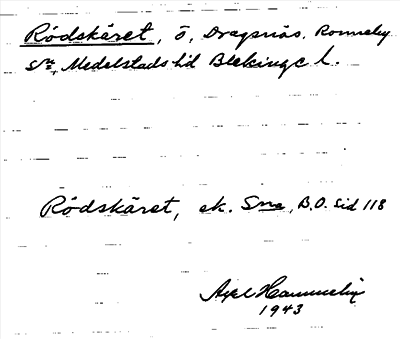 Rödskäret, ö, Dragsnäs, Ronneby
sn, Medelstads hd Blekinge l.
Rödskäret, ek. Sne, B.O. sid 118
Axel Hammelin
1943